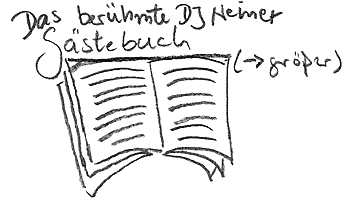 Das berühmte DJ Heiner
Gästebuch
(→ größer)